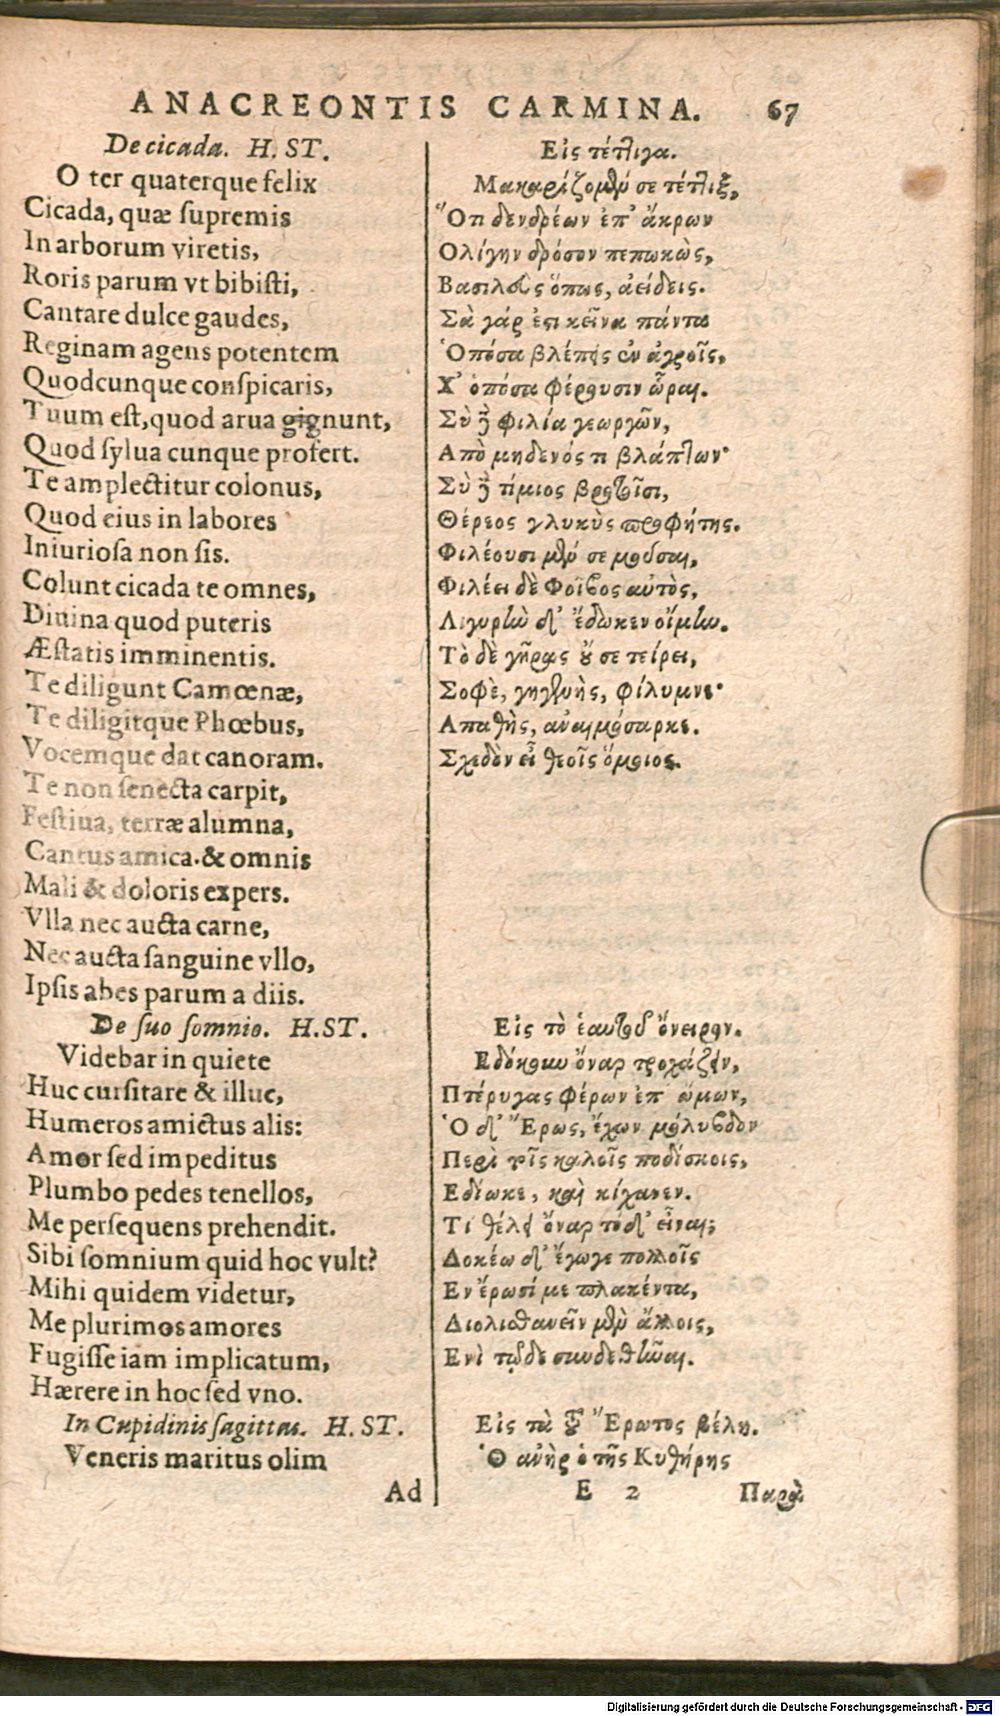 ANACREONTIS CARMINA. 67
De cicada. H. ST.
O ter quaterque felix
Cicada, quæ ſupremis
In arborum viretis,
Roris parum vt bibiſti,
Cantare dulce gaudes,
Reginam agens potentem
Quodcunque conſpicaris,
Tuum eſt, quod arua gignunt,
Quod ſylua cunque profert.
Te amplectitur colonus,
Quod eius in labores
Iniurioſa non ſis.
Colunt cicada te omnes,
Diuina quod puteris
Æſtatis imminentis.
Te diligunt Camœnæ,
Te diligitque Phœbus,
Vocemque dat canoram.
Te non ſenecta carpit,
Feſtiua, terræ alumna,
Cantus amica. & omnis
Mali & doloris expers.
Vlla nec aucta carne,
Nec aucta ſanguine vllo,
Ipſis abes parum a diis.
De ſuo ſomnio. H. ST.
Videbar in quiete
Huc curſitare & illuc,
Humeros amictus alis:
Amor ſed impeditus
Plumbo pedes tenellos,
Me perſequens prehendit.
Sibi ſomnium quid hoc vult?
Mihi quidem videtur,
Me plurimos amores
Fugiſſe iam implicatum,
Hærere in hoc ſed vno.
In Cupidinis ſagittas. H. ST.
Veneris maritus olim
Ad
Εἰς τέτλιγα.
Μακαρίζομϸύ σε τέτλιξ,
Ὅτι δενδρέων ἐπ' ἄκρων
Ολίγην δρόσον πεπωκὼς,
Βασιλεὺς ὅπως, ἀείδεις.
Σὰ γάρ ἐστι κεῖνα πάντα
Ὁπόσα βλέπεις ἐν ἀγροῖς,
Χ' ὁπόσα φέρουσιν ὧραι.
Σὺ δὲ φιλία γεωργῶν,
Απὸ μηδενός τι βλάπτων·
Σὺ δὲ τίμιος βροτοῖσι,
Θέρεος γλυκὺς προφήτης.
Φιλέουσι μὲν σε μοῦσαι,
Φιλέει δὲ Φοῖβος αὐτὸς,
Λιγυρὴν δ' ἔδωκεν οἴμην.
Τὸ δὲ γῆρας οὔ σε τείρει,
Σοφὲ, γηγενὴς, φίλυμνε·
Απαθὴς, ἀναιμόσαρκε.
Σχεδὸν εἶ θεοῖς ὅμοιος.
Εἰς τὸ ἑαυτοῦ ὄνειρον.
Εδόκουν ὄναρ τροχάζειν,
Πτέρυγας φέρων ἐπ' ὤμων,
Ὁ δ' Ἔρως, ἔχων μόλυβδον
Περὶ τοῖς καλοῖς ποδίσκοις,
Εδίωκε, καὶ κίχανεν.
Τί θέλει ὄναρ τόδ' εἶναι;
Δοκέω δ' ἔγωγε πολλοῖς
Εν ἔρωσί με πλακέντα,
Διολισθανεῖν μὲν ἄλλοις,
Ενὶ τῷδε συνδεθῆναι.
Εἰς τὰ τοῦ Ἔρωτος βέλη.
Ὁ ἀνὴρ ὁ τῆς Κυθήρης
E 2 Παρὰ
Digitalisierung gefördert durch die Deutsche Forschungsgemeinschaft - DFG